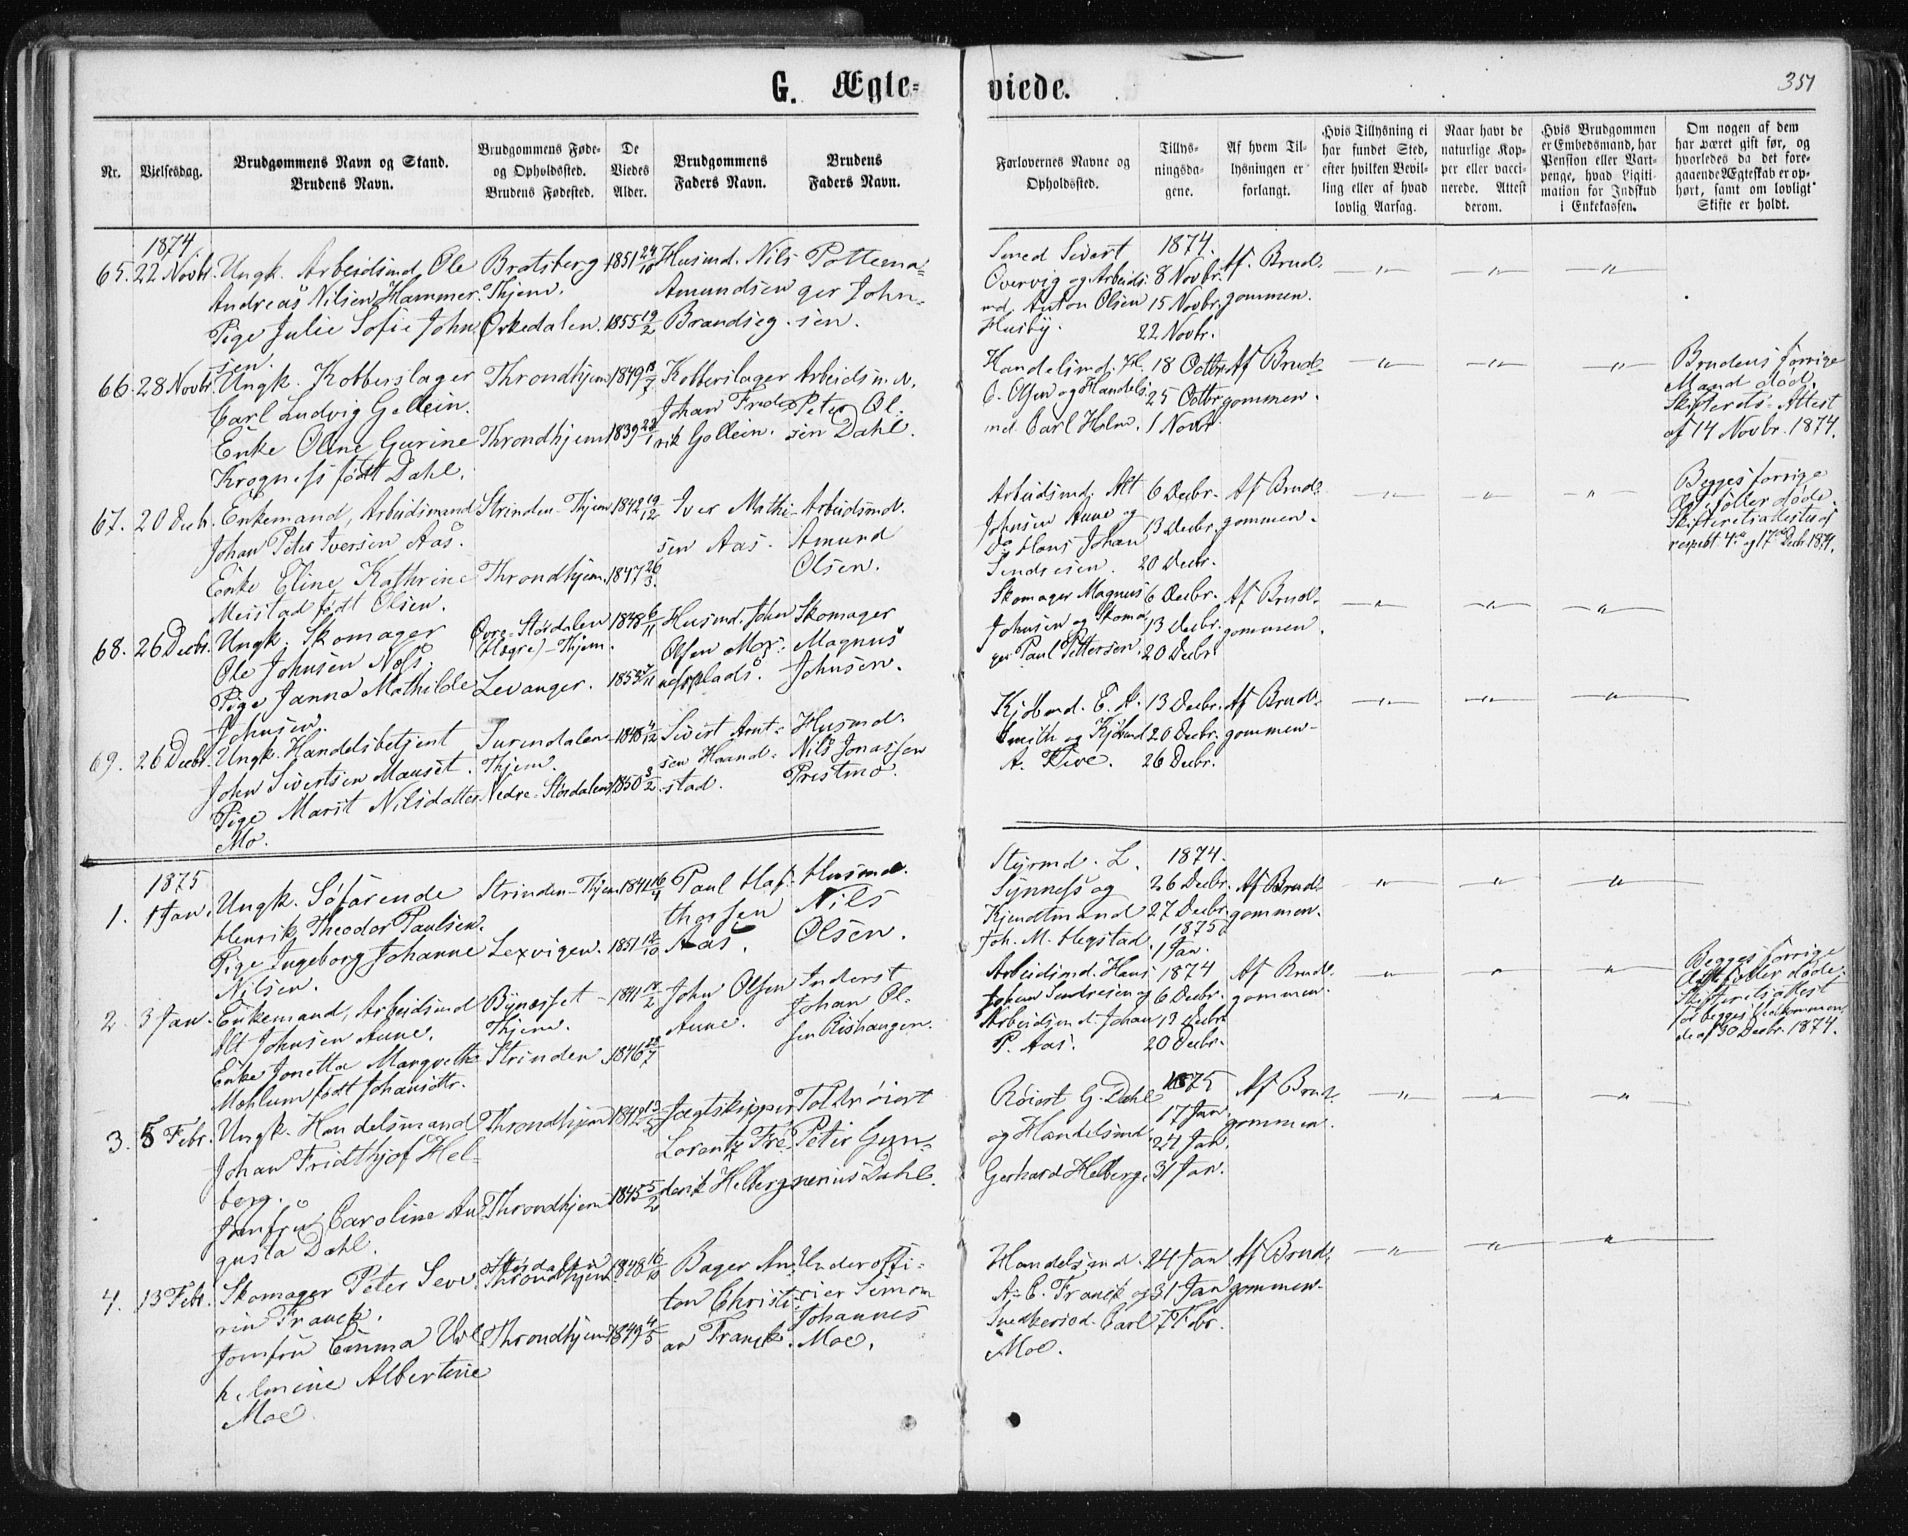 G. Ægteviede.
351
Nr.
Vielsesdag.
Brudgommens Navn og Stand.
Brudens Navn.
Brudgommens Føde-
og Opholdssted.
Brudens Fødested.
De
Viedes
Alder.
Brudgommens
Faders Navn.
Brudens
Faders Navn.
Forlovernes Navne og
Opholdssted.
Tillys-
ningsda-
gene.
Af hvem Til-
lysningen er
forlangt.
Hvis Tillysning ei
har fundet Sted,
efter hvilken Bevil-
ling eller af hvad
lovlig Aarsag.
Naar havt de
naturlige Kop-
per eller vacci-
nerede. Attest
derom.
Hvis Brudgommen
er Embedsmand, har
Pension eller Vart-
penge, hvad Ligiti-
mation for Indskud
i Enkekassen.
Om nogen af dem
har været gift før, og
hvorledes da det fore-
gaaende Ægteskab er op-
hørt, samt om lovligt
Skifte er holdt.
1874
65. 22 Novbr.
Ungk. Arbeidsmd. Ole
Andreas Nilsen Hammer.
Pige Julie Sofie John
sen.
Bratsberg
Thjem.
Orkedalen.
1851 24/10
1855 19/2
Husmd. Nils
Amundsen
Brandseg.
Pottema-
ger John-
sen.
Smed Sivert
Overvig og Arbeids-
md. Anton Olsen
Husby.
1874.
8 Novbr.
15 Novbr.
22 Novbr.
Af Brud-
gommen.
66. 28 Novbr.
Ungk. Kobberslager
Carl Ludvig Gollein.
Enke Oline Gurine
Krogness født Dahl.
Throndhjem
Throndhjem
1849
1839
Kobberslager
Johan Frede
rik Gollein.
Arbeidsmd.
Peter Ol-
sen Dahl.
Handelsmd. H.
O. Olsen og Handels-
md. Carl Holm.
18 Octbr.
25 Octbr.
1 Novbr.
Af Brud-
gommen.
Brudens forrige
Mand død.
Skifterets-Attest
af 14 Novbr. 1874.
67. 20 Decbr.
Enkemand, Arbeidsmand
Johan Peter Iversen Aas.
Enke Eline Kathrine
Meistad født Olsen.
Strinden-Thjem
Throndhjem
1842 19/12
1847 26/3
Iver Mathi-
sen Aas.
Arbeidsmd.
Amund
Olsen.
Arbeidsmd. Alt
Johnsen Aune og
Do Hans Johan
Sendresen.
6 Decbr.
13 Decbr.
20 Decbr.
Af Brud-
gommen.
Begges forrige
Ægtefæller døde.
Skifteretsattester af
respekt. 4de og 17de Decbr 1874.
68. 26 Decbr.
Ungk. Skomager
Ole Johnsen Næss.
Pige Janna Mathilde
Johnsen.
Øvre-Størdalen
(Hegre)-Thjem.
Levanger.
1848 6/11
1853
Husmd. John
Olsen Mor-
næsplads.
Skomager
Magnus
Johnsen.
Skomager Magnus
Johnsen og Skoma
ger Paul Pettersen.
6 Decbr.
13 Decbr.
20 Decbr.
Af Brud-
gommen.
69. 26 Decbr.
Ungk. Handelsbetjent
John Sivertsen Mauset.
Pige Marit Nilsdatter
Mo.
Surendalen
Thjem.
Nedre-Størdalen
1848 4/12
1850 3/2
Sivert Arnt-
sen Haand-
stad.
Husmd.
Nils Jonassen
Prestmo.
Kjøbmd. E. A.
Smith og Kjøbmd
A. Five.
13 Decbr.
20 Decbr.
26 Decbr.
Af Brud-
gommen
1875
1. 1 Jan.
Ungk. Søfarende
Henrik Theodor Paulsen.
Pige Ingeborg Johanne
Nilsen.
Strinden-Thjem
Lexvigen.
1841 16/4
1851 12/10
Paul Haf-
thorsen
Aas.
Husmd.
Nils
Olsen.
Styrmd. L.
Synness og
Kjendtmand
Joh. M. Hegstad.
1874.
26 Decbr.
27 Decbr.
1875
1 Jan.
Af Brud-
gommen.
2. 3 Jan.
Enkemand, Arbeidsmd
Alt Johnsen Aune.
Enke Jonetta Margrethe
Mæhlum født Johansdtr.
Bynesset
Thjem.
Strinden
1841
1846
John Olsen
Aune.
Inderst
Johan Ol-
sen Rishaugen.
Arbeidsmd. Hans
Johan Sendresen og
Arbeidsmd. Johan
P. Aas.
1874
6 Decbr.
13 Decbr.
20 Decbr.
Af Brud-
gommen.
Begges forrige
Ægtefæller døde.
Skifteretsattest
for begges Vedkommen
de af 30 Decbr. 1874.
3. 5 Febr.
Ungk. Handelsmand
Johan Fridthjof Hel-
berg.
Jomfru Caroline Au
gusta Dahl.
Throndhjem
Throndhjem
1842
1845 5/2
Jægtskipper
Lorentz Fre-
derik Helberg
Toldrøiert
Peter Gun-
nerius Dahl.
Røiert G. Dahl
og Handelsmd.
Gerhard Helberg.
1875
17 Jan.
24 Jan.
31 Jan.
Af Brud-
gommen.
4. 13 Febr.
Skomager Peter Seve
rin Franck.
Jomfru Emma Vil
helmine Albertine
Moe.
Størdalen
Throndhjem
Throndhjem
1848 16/10
1849 4/5
Bager An-
ton Christi-
an Franck.
Underoffi-
cier Simon
Johannes
Moe.
Handelsmd.
A. C. Franck og
Snedkeriod. Carl
Moe.
24 Jan
31 Jan
7 Febr.
Af Brud-
gommen.